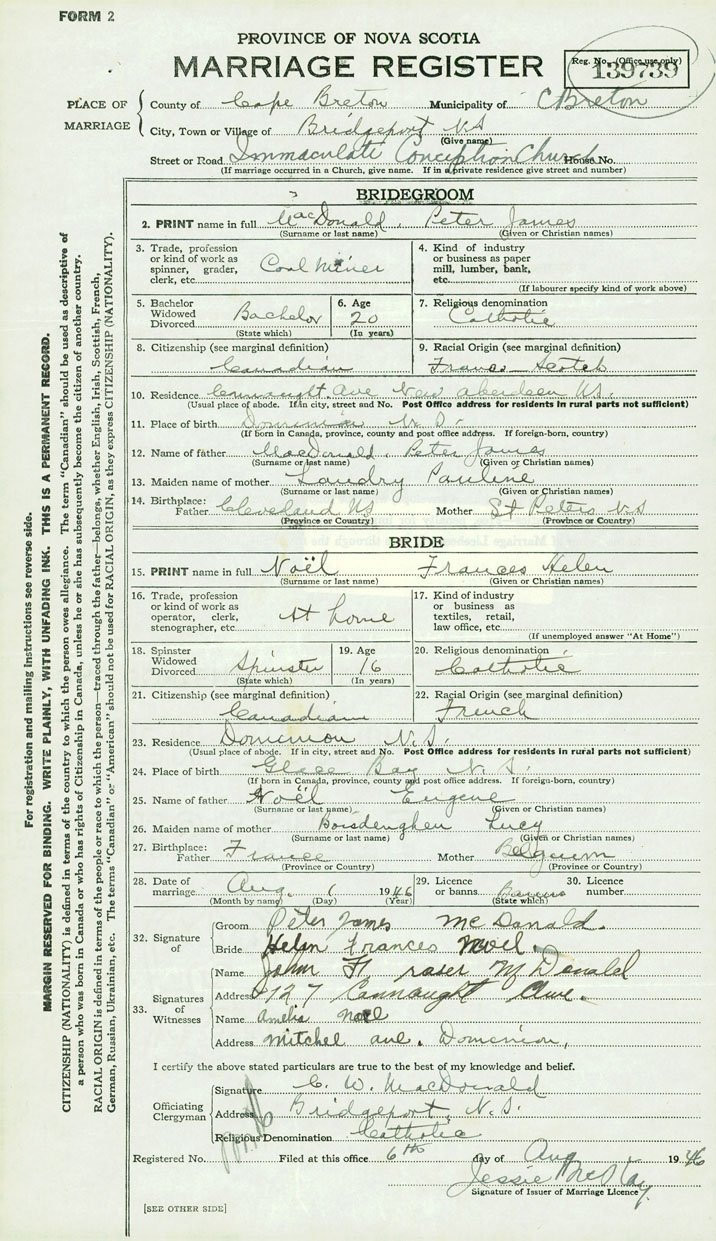 FORM 2
PROVINCE OF NOVA SCOTIA
MARRIAGE REGISTER
Reg. No. (Office use only)
139739
PLACE OF MARRIAGE
County of Cape Breton Municipality of C Breton
City, Town or Village of Bridgeport N.S
(Give name)
Street or Road Immaculate Conception Church House No.
(If marriage occurred in a Church, give name. If in a private residence give street and number)
BRIDEGROOM
2. PRINT name in full MacDonald, Peter James
(Surname or last name) (Given or Christian names)
3. Trade, profession or kind of work as spinner, grader, clerk, etc. Coal Miner
4. Kind of industry or business as paper mill, lumber, bank, etc.
(If labourer specify kind of work above)
5. Bachelor Widowed Divorced Bachelor (State which)
6. Age 20 (In years)
7. Religious denomination Catholic
8. Citizenship (see marginal definition) Canadian
9. Racial Origin (see marginal definition) Scotch
10. Residence Connaught Ave New Aberdeen N.S.
(Usual place of abode. If in city, street and No. Post Office address for residents in rural parts not sufficient)
11. Place of birth Dominion N.S.
(If born in Canada, province, county and post office address. If foreign-born, country)
12. Name of father MacDonald, Peter James
(Surname or last name) (Given or Christian names)
13. Maiden name of mother Landry Pauline
(Surname or last name) (Given or Christian names)
14. Birthplace: Father Cleveland NS Mother St Peters N.S
(Province or Country) (Province or Country)
BRIDE
15. PRINT name in full Noël Frances Helen
(Surname or last name) (Given or Christian names)
16. Trade, profession or kind of work as operator, clerk, stenographer, etc. At home
17. Kind of industry or business as textiles, retail, law office, etc.
(If unemployed answer "At Home")
18. Spinster Widowed Divorced Spinster (State which)
19. Age 16 (In years)
20. Religious denomination Catholic
21. Citizenship (see marginal definition) Canadian
22. Racial Origin (see marginal definition) French
23. Residence Dominion N.S.
(Usual place of abode. If in city, street and No. Post Office address for residents in rural parts not sufficient)
24. Place of birth Glace Bay N.S.
(If born in Canada, province, county and post office address. If foreign-born, country)
25. Name of father Noël Eugene
(Surname or last name) (Given or Christian names)
26. Maiden name of mother Lucy
(Surname or last name) (Given or Christian names)
27. Birthplace: Father France Mother Belgium
(Province or Country) (Province or Country)
28. Date of marriage Aug. 1 1946
(Month by name) (Day) (Year)
29. Licence or banns Banns (State which)
30. Licence number
32. Signature of
Groom Peter James McDonald.
Bride Helen Frances Noel.
33. Signatures of Witnesses
Name John Fraser McDonald
Address 127 Connaught Ave.
Name Amelia Noel
Address Mitchel ave. Dominion,
I certify the above stated particulars are true to the best of my knowledge and belief.
Officiating Clergyman
Signature C. W. MacDonald
Address Bridgeport, N.S.
Religious Denomination Catholic
Registered No. Filed at this office 6th day of Aug 1946
Jessie McKay
Signature of Issuer of Marriage Licence
[SEE OTHER SIDE]
For registration and mailing instructions see reverse side.
MARGIN RESERVED FOR BINDING. WRITE PLAINLY, WITH UNFADING INK. THIS IS A PERMANENT RECORD.
CITIZENSHIP (NATIONALITY) is defined in terms of the country to which the person owes allegiance. The term "Canadian" should be used as descriptive of
a person who was born in Canada or who has rights of Citizenship in Canada, unless he or she has subsequently become the citizen of another country.
RACIAL ORIGIN is defined in terms of the people or race to which the person—traced through the father—belongs, whether English, Irish, Scottish, French,
German, Russian, Ukrainian, etc. The terms "Canadian" or "American" should not be used for RACIAL ORIGIN, as they express CITIZENSHIP (NATIONALITY).